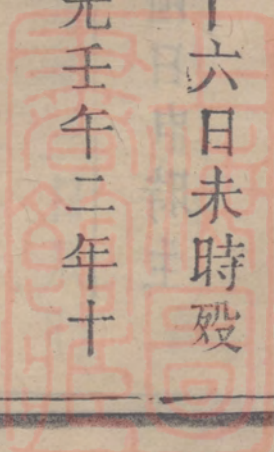 十六日未時殁
元壬午二年十